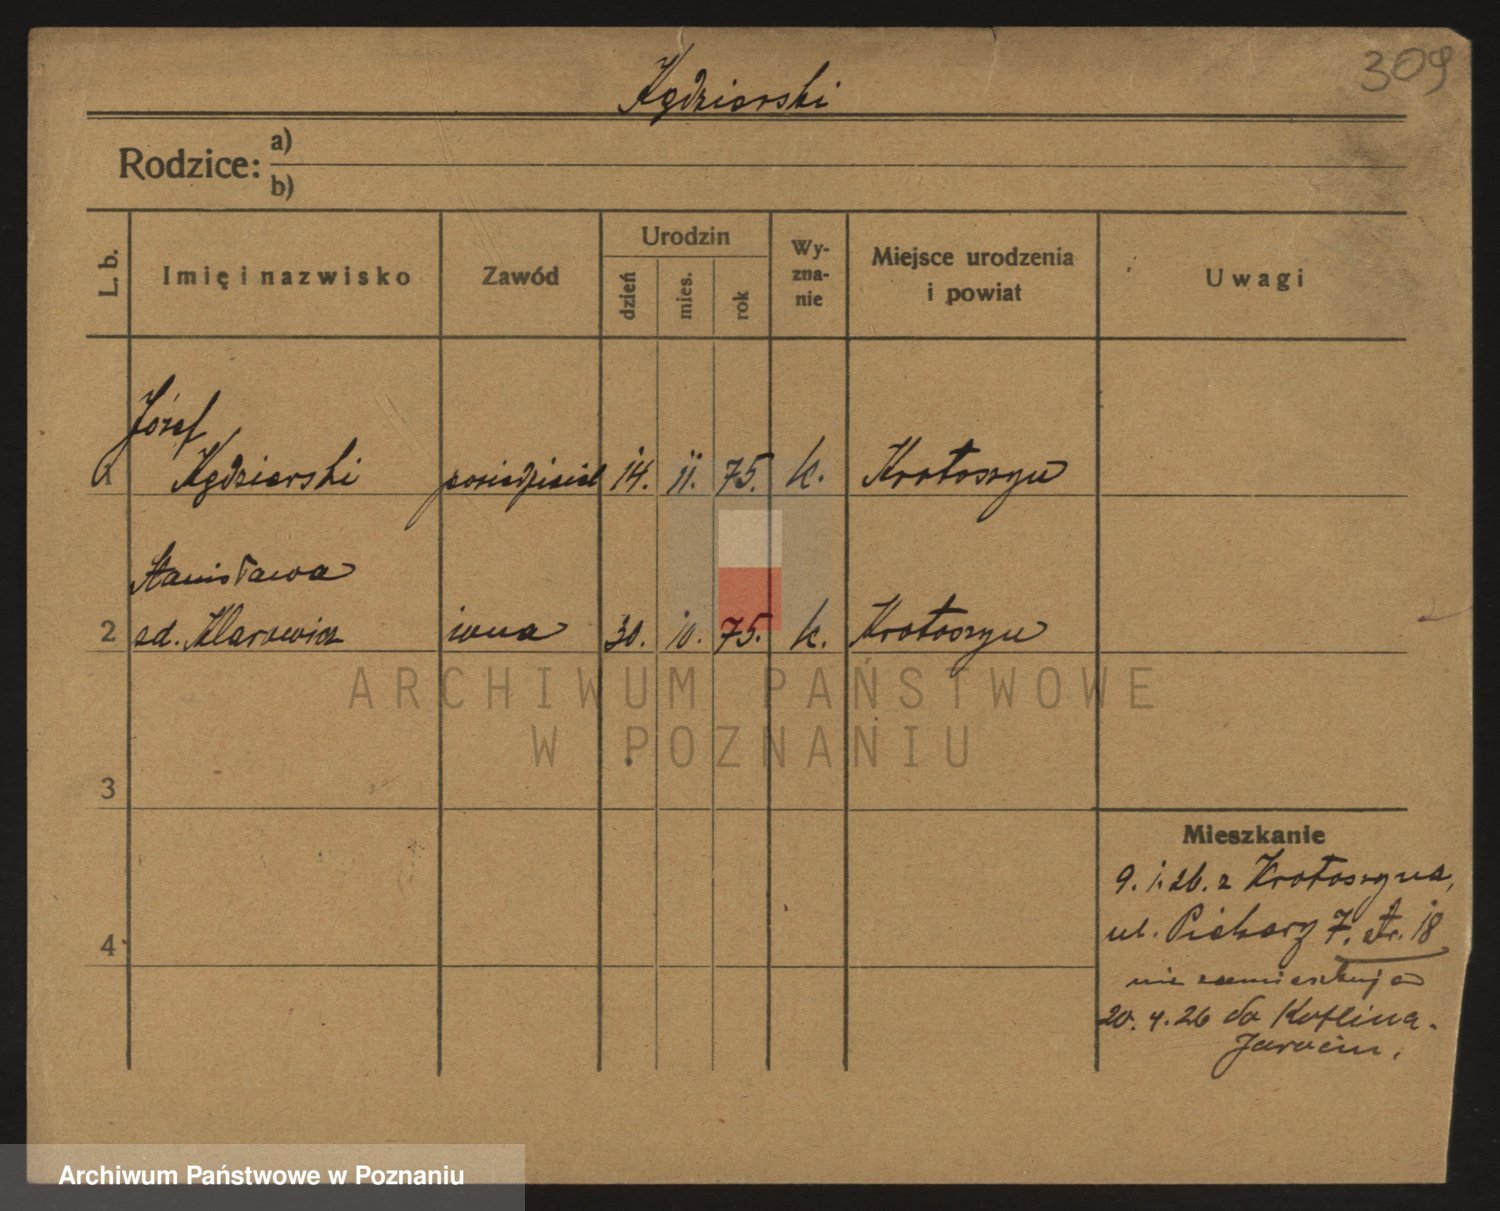 309
Kędzierski
Rodzice: a)
b)
L. b.
Imię i nazwisko
Zawód
Urodzin
dzień
mies.
rok
Wy-
zna-
nie
Miejsce urodzenia
i powiat
Uwagi
Józef
1 Kędzierski posiedziciel 14. 11. 75. k. Krotoszyn
Stanisława
2 zd. Klarowicz żona 30. 10. 75. k. Krotoszyn
ARCHIWUM PAŃSTWOWE
W POZNANIU
3
4
Mieszkanie
9. 1. 26. z Krotoszyna,
ul. Piekary 7. str. 18
nie zamieszkuje
20. 4. 26 do Kotlina.
Jarocin.
Archiwum Państwowe w Poznaniu